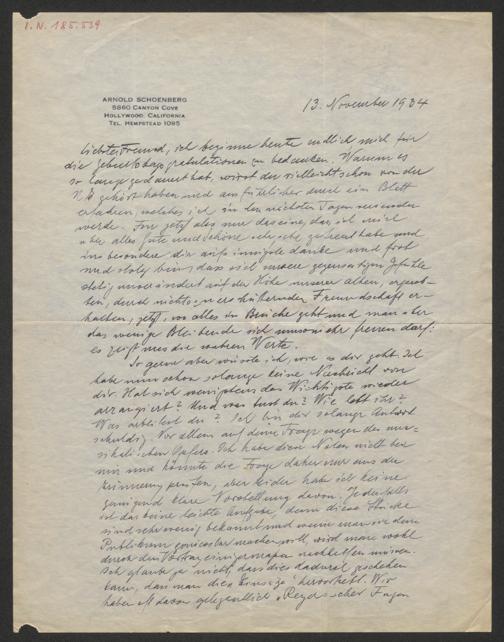 I.N. 185.539
ARNOLD SCHOENBERG
5860 CANYON COVE
HOLLYWOOD, CALIFORNIA
TEL. HEMPSTEAD 1095
13. November 1934
Liebster Freund, ich beginne heute endlich mich für
die Geburtstagsgratulationen zu bedanken. Warum es
so lange gedauert hat, wirst du vielleicht schon von der
gehört haben und ausführlicher durch ein Blatt
erfahren, welches ich in den nächsten Tagen versenden
werde. Für jetzt also nur das eine, dass ich mich
über alles Gute und Schöne sehr, sehr gefreut habe und
insbesondere dir aufs innigste danke und froh
und stolz bin, dass sich unsere gegenseitigen Gefühle
stetig unverändert auf der Höhe unserer alten, erprob-
ten, durch nichts zu erschütternden Freundschaft er-
halten, jetzt, wo alles in Brüche geht und man über
das wenige Bleibende sich umsomehr freuen darf:
es zeigt uns die wahren Werte.
So gerne aber wüsste ich, wie es dir geht. Ich
habe nun schon solange keine Nachricht von
dir. Hat sich wenigstens das Wichtigste wieder
arrangiert? Und was tust du? Wie lebt ihr?
Was arbeitest du? Ich bin dir solange Antwort
schuldig. Vor allem auf deine Frage wegen des mu-
sikalischen Opfers. Ich habe diese Noten nicht bei
mir und könnte die Frage daher nur aus der
Erinnerung prüfen, aber leider habe ich keine
genügend klare Vorstellung davon. Jedenfalls
ist das keine leichte Aufgabe, denn diese Stücke
sind sehr wenig bekannt und wenn man sie dem
Publikum geniessbar machen will, wird man wohl
durch den Vortrag einigermassen nachhelfen müssen.
Ich glaube ja nicht, dass dies dadurch geschehen
kann, dass man die Einsätze "hervorhebt". Wir
haben oft davon gelegentlich Fugen